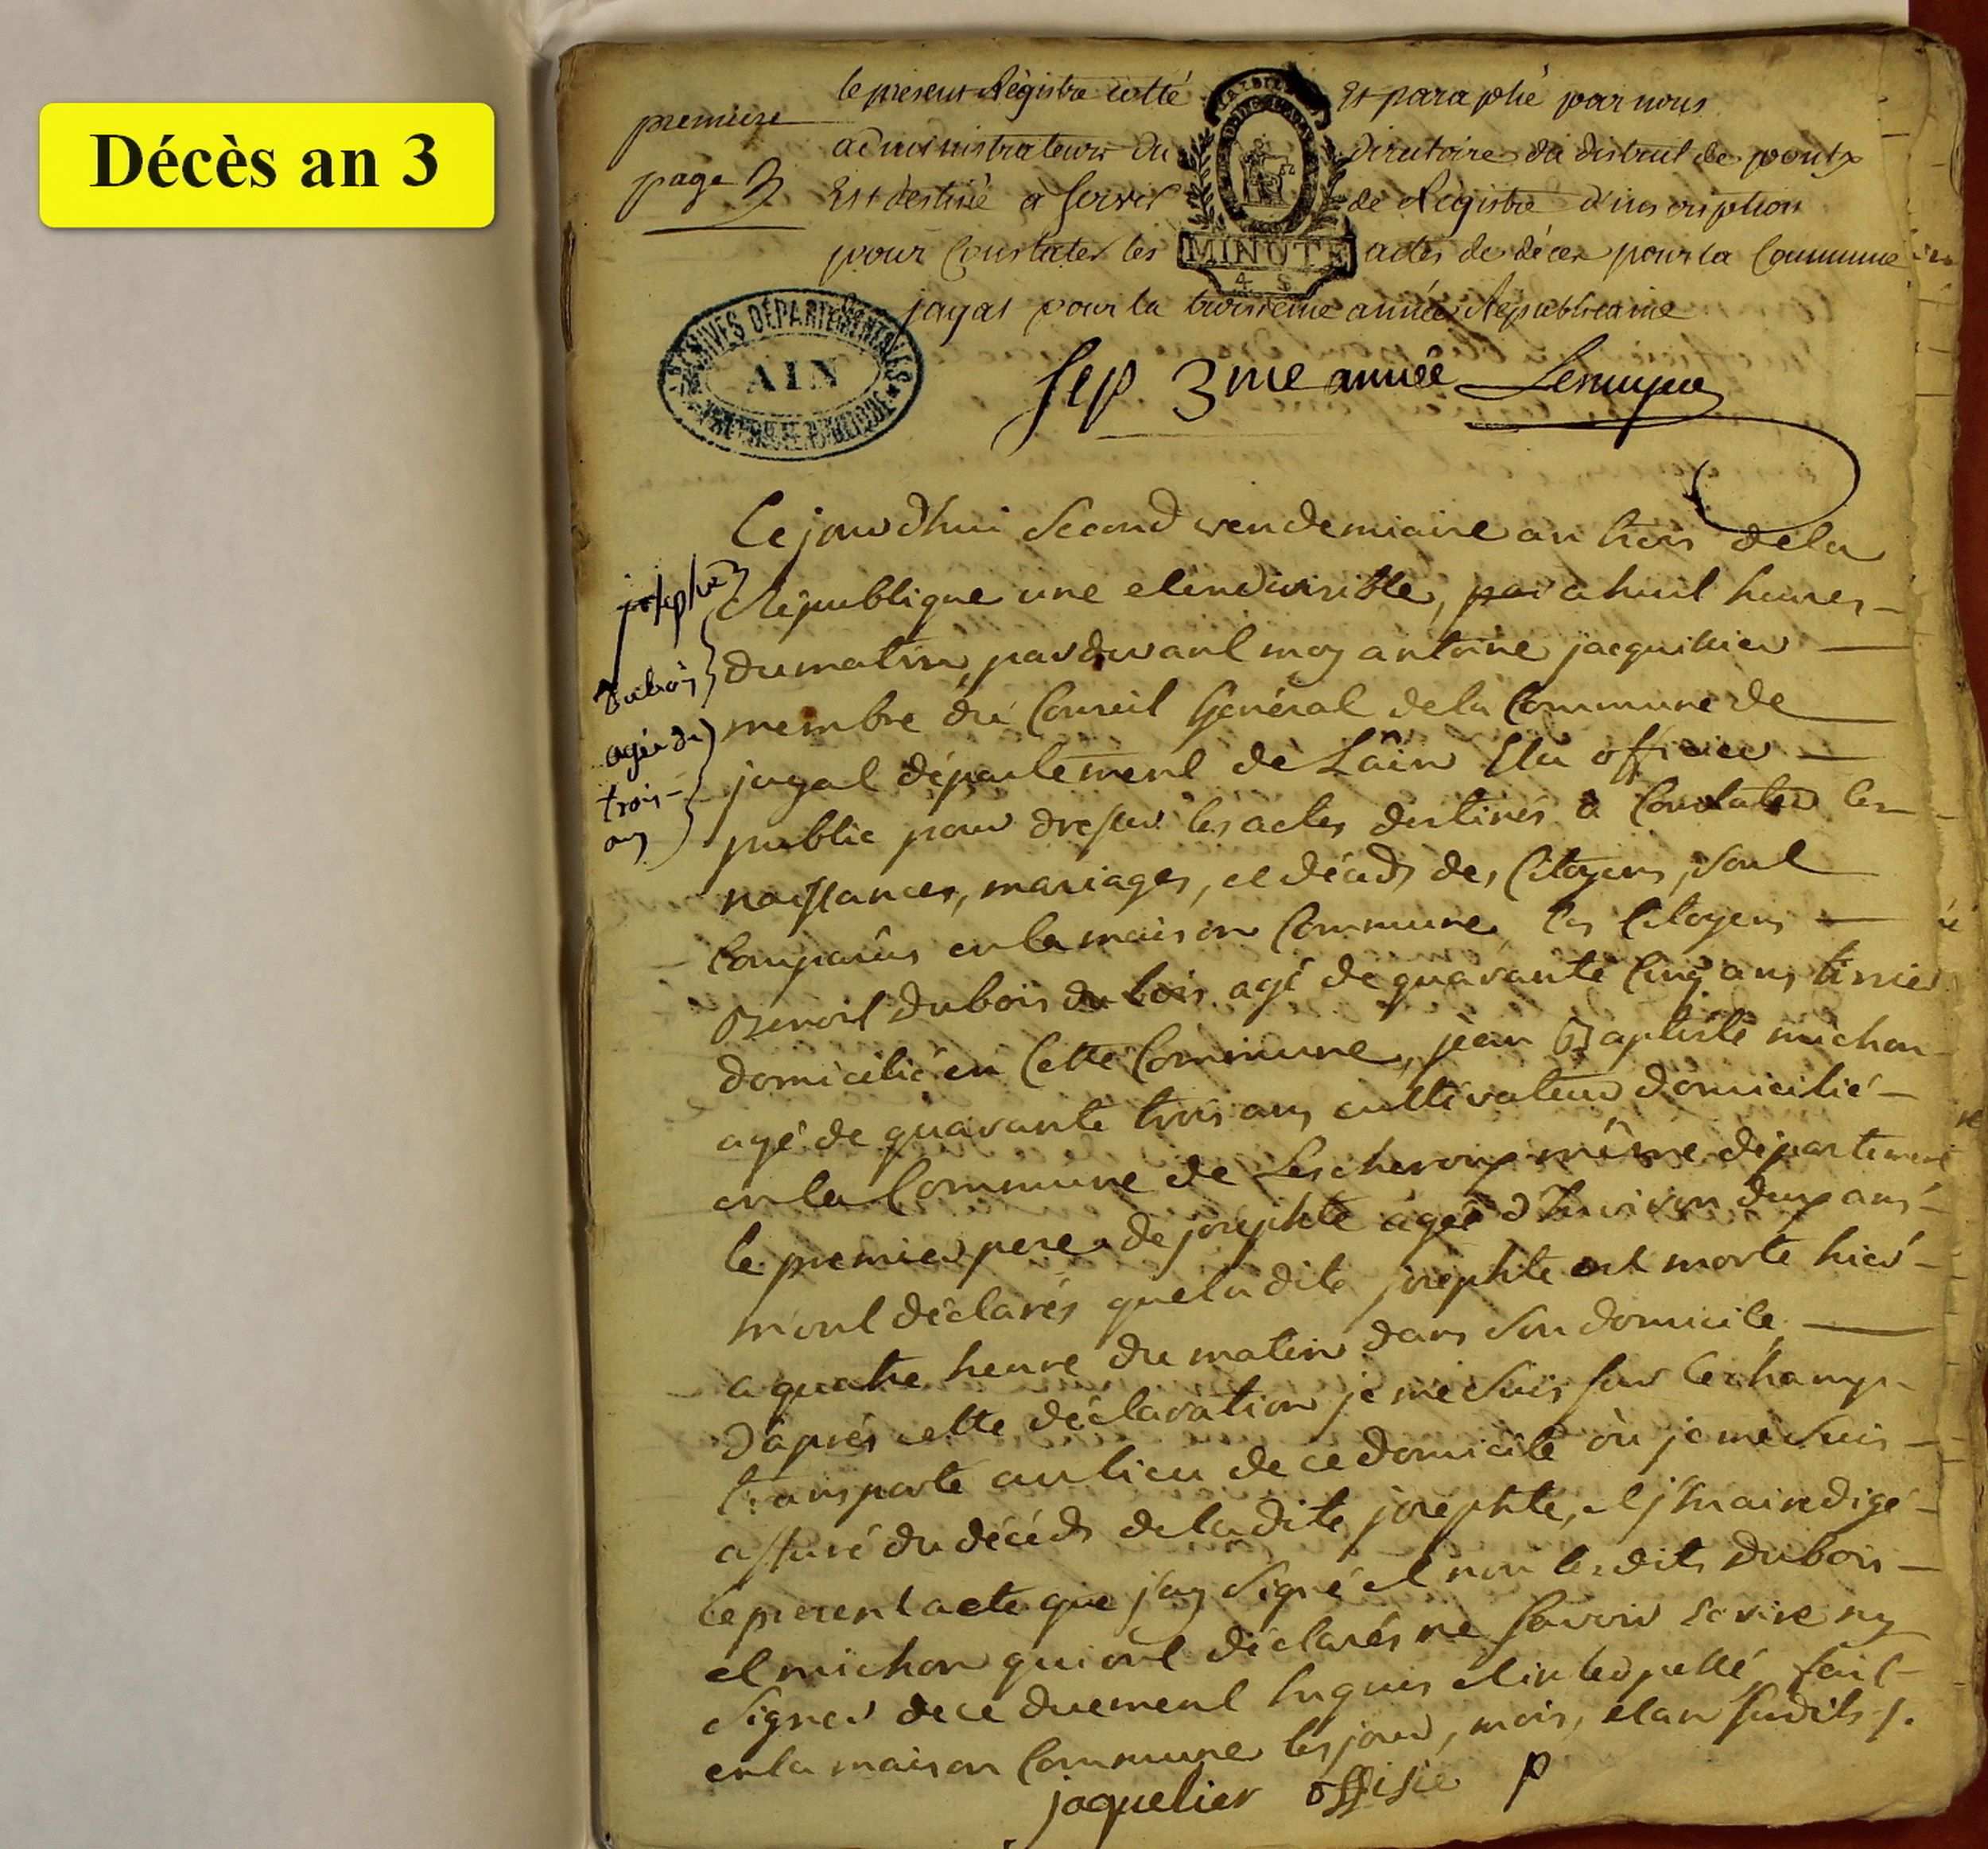 Décès an 3
premiere
page
le present Régistre cotté et paraphé par nous
administrateurs du directoire du district de pontx
Est destiné a servir de Régistre d'inscription
pour Constater les actes de décès pour la Commune
jayat pour la troisieme année Républicaine
MINUTE
4 S
ARCHIVES DÉPARTEMENTALES
AIN
3me année
Cejourd'hui second vendemiaire an trois dela
République une etindivisible, par a huit heures
dumatin, pardevant moy antoine jacquilier
membre du Conseil Général dela Commune de
jayat département de Lain Elu officier
public pour dresser les actes destinés à Constater les
naissances, mariages, et décéds des Citoyens, sont
Comparûs enla maison Commune, les Citoyens
Benoit dubois du bois agé de quarante cinq ans tissier
domicilié en Cette Commune, jean Baptiste michon
agé de quarante trois ans cultivateur domicilié
en la Commune de Lescheroux même département
le premier pere de josephte agée d'Environ deux ans
m'ont déclarés queladite josephte est morte hier
a quatre heure du matin dans son domicile,
D'aprés cette déclaration je me suis sur le champ
transporté au lieu de ce domicile où je me suis
assuré du décéds deladite josephte, et j'en ai redigé
le present acte que j'ay signé et non lesdits dubois
et michon qui ont déclarés ne savoir Ecrire ny
signer dece duement Enquis etinterpellé, fait
enla maison Commune les jour, mois, et an susdits /.
jaquelier offisie p
josephte
Dubois
agée de
trois
ans